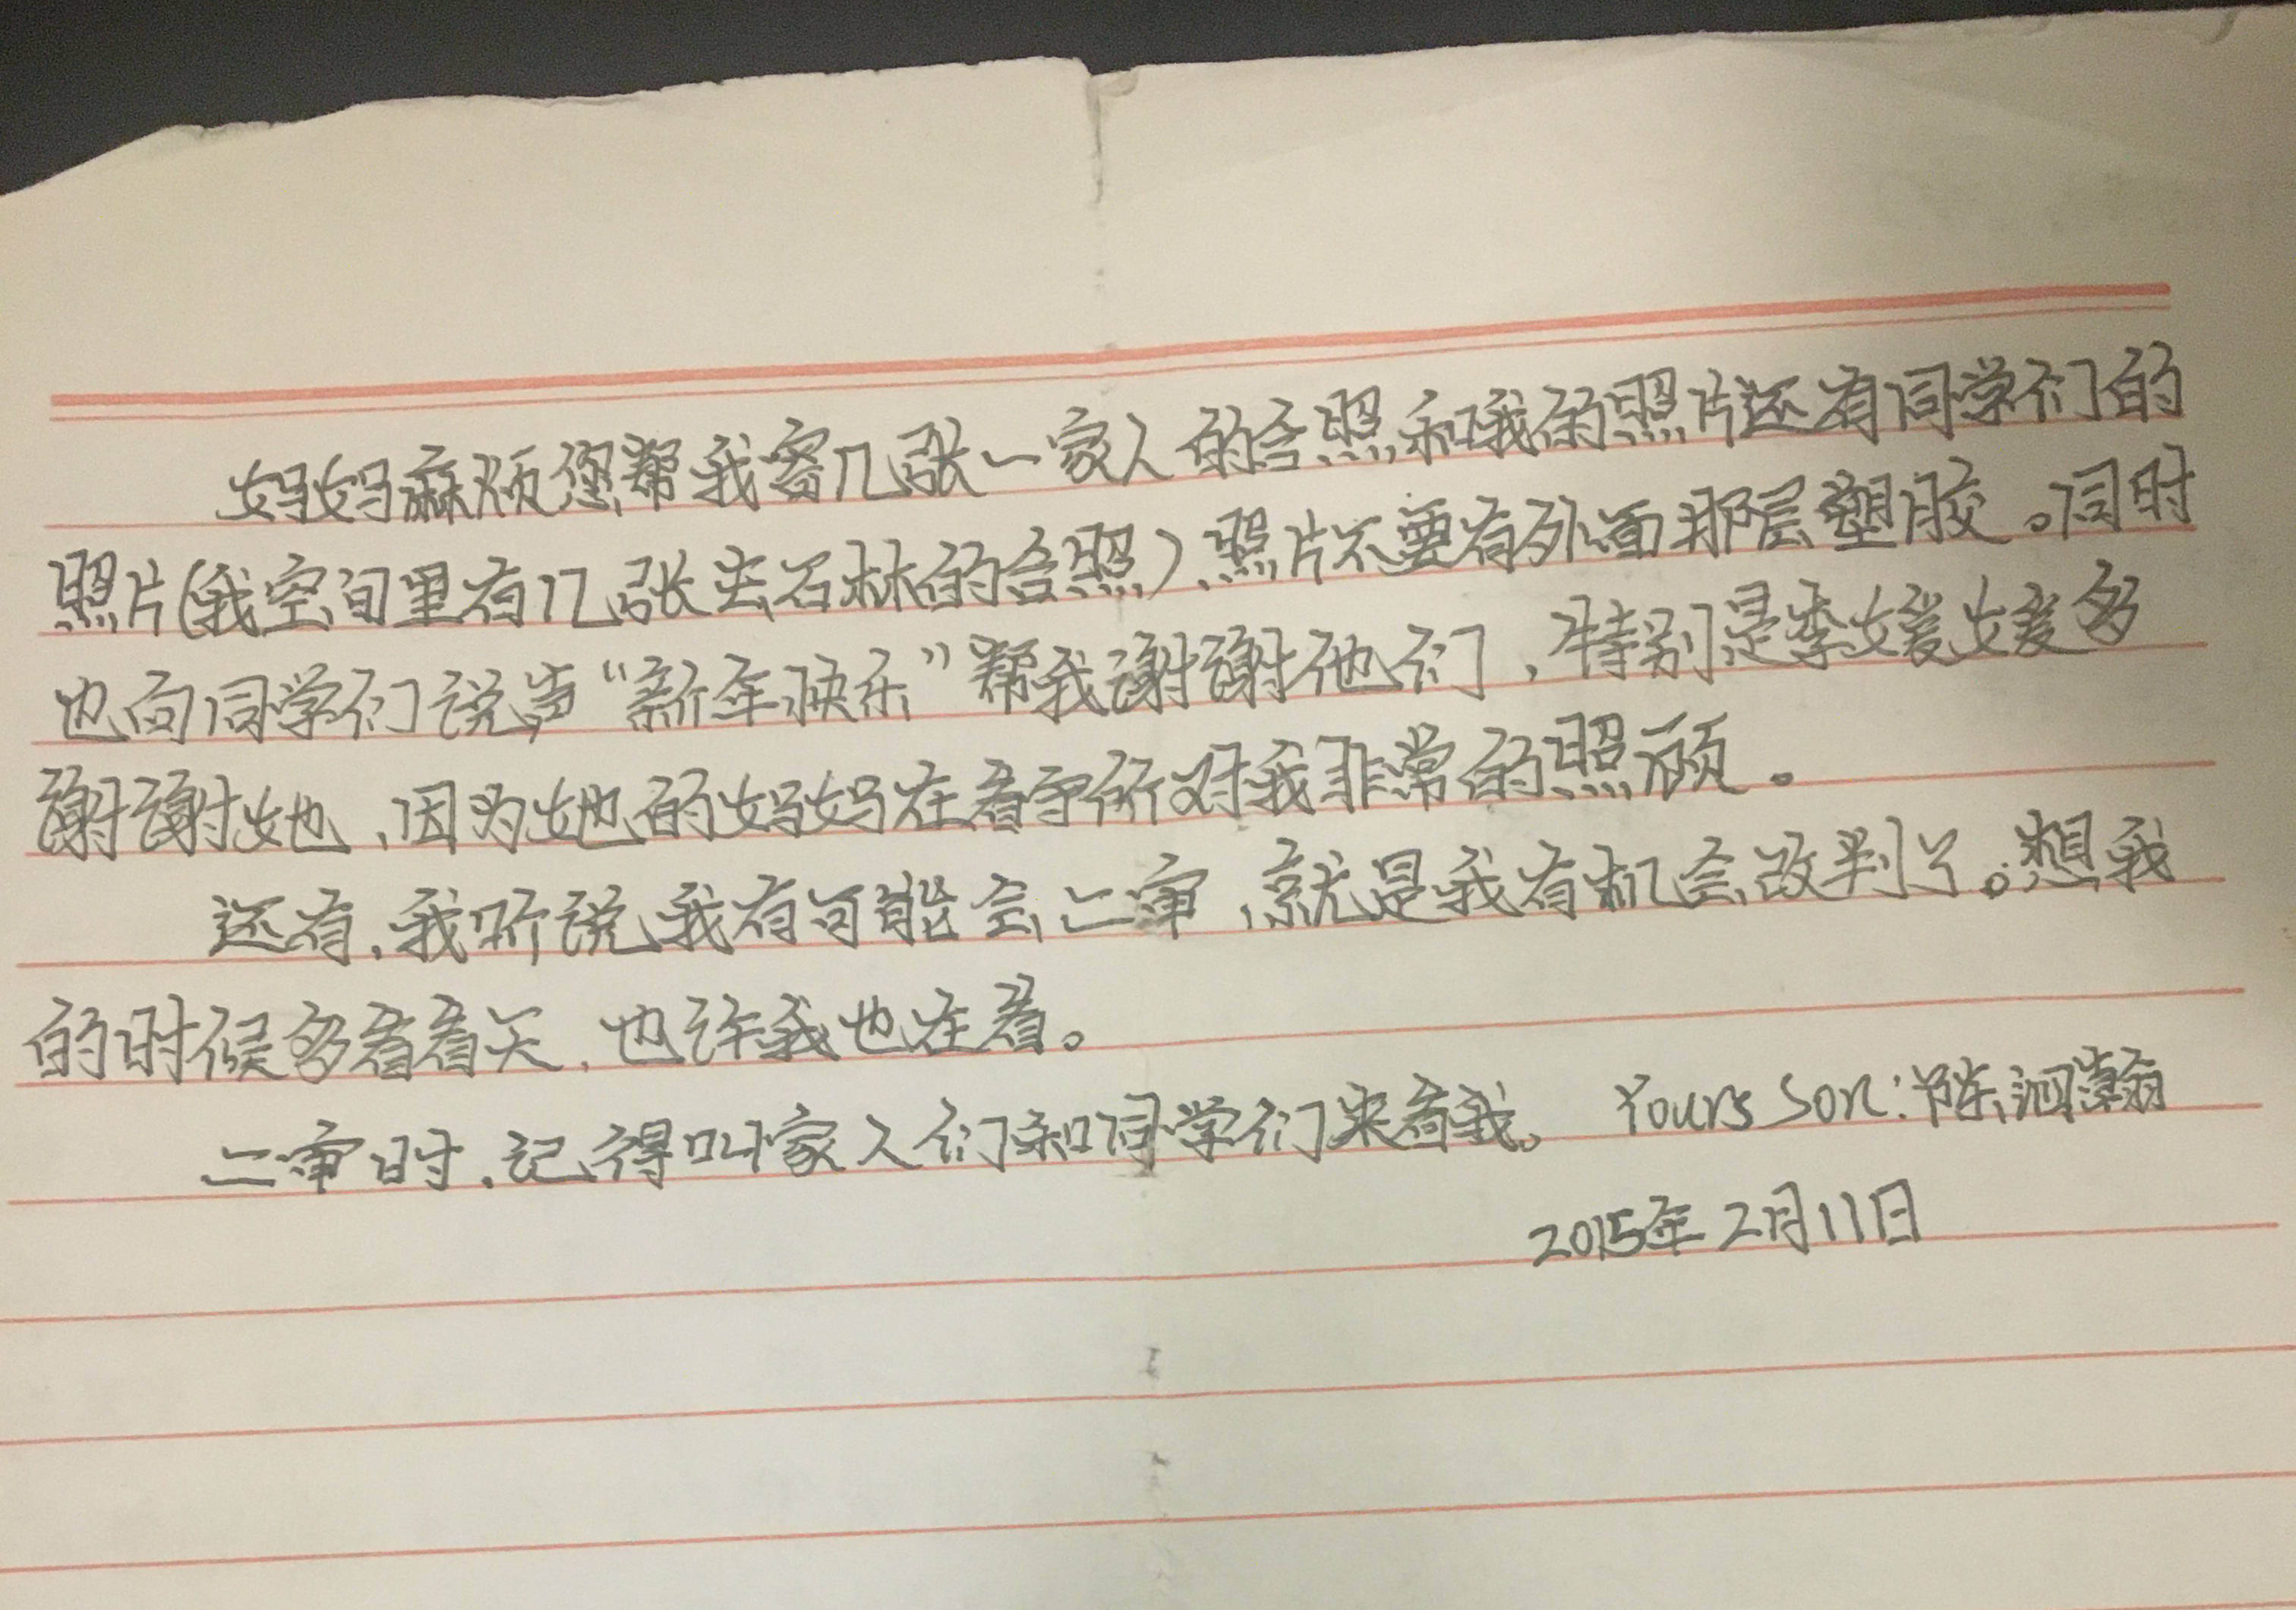 妈妈麻烦您帮我寄几张一家人的合照和我的照片还有同学们的
照片(我空间里有几张去石林的合照)、照片不要有外面那层塑胶。同时
也向同学们说声“新年快乐”帮我谢谢他们，特别是李媛媛多
谢谢她，因为她的妈妈在看守所对我非常的照顾。
还有，我听说我有可能会二审，就是我有机会改判了。想我
的时候多看看天，也许我也在看。
二审时，记得叫家人们和同学们来看我。 Yours Son：陈泗瀚
2015年2月11日